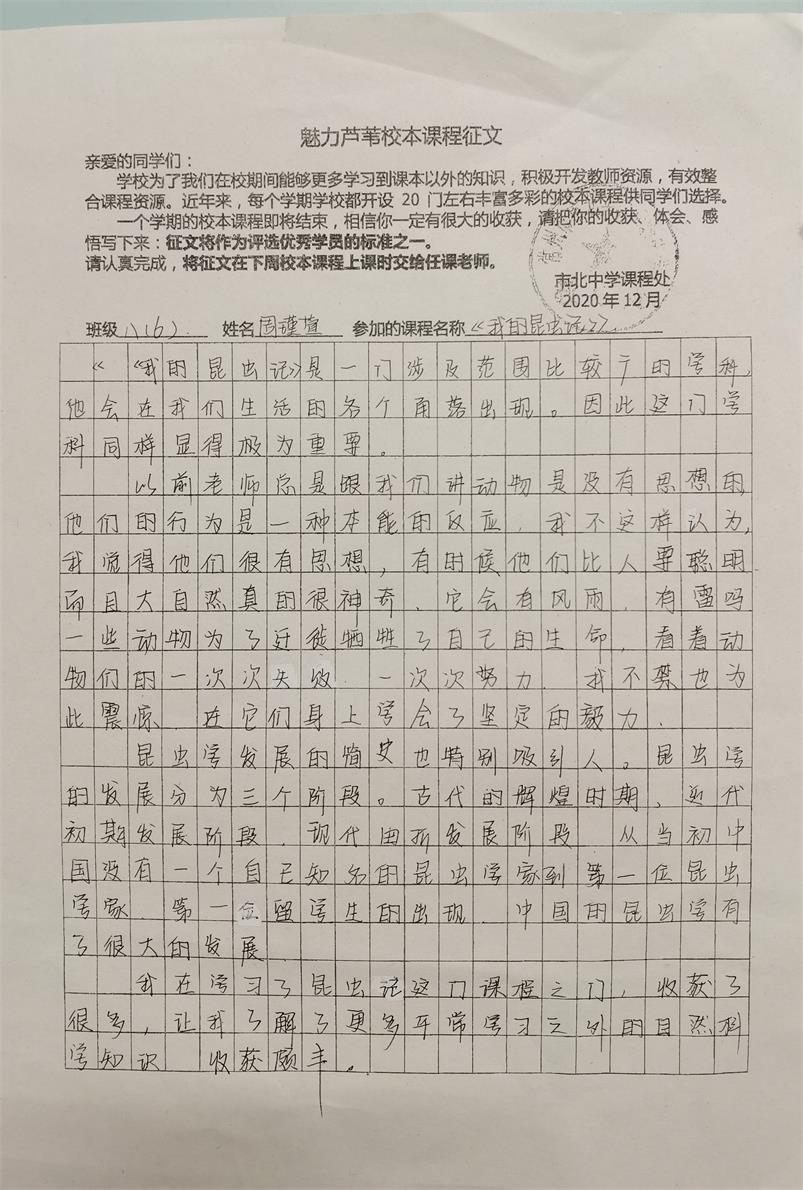 魅力芦苇校本课程征文
亲爱的同学们：
学校为了我们在校期间能够更多学习到课本以外的知识，积极开发教师资源，有效整
合课程资源。近年来，每个学期学校都开设 20 门左右丰富多彩的校本课程供同学们选择。
一个学期的校本课程即将结束，相信你一定有很大的收获，请把你的收获、体会、感
悟写下来：征文将作为评选优秀学员的标准之一。
请认真完成，将征文在下周校本课程上课时交给任课老师。
市北中学课程处
2020 年 12 月
班级 八(6) 姓名 周瑾萱 参加的课程名称《我的昆虫记》
《《我的昆虫记》是一门涉及范围比较广的学科，
他会在我们生活的各个角落出现。因此这门学
科同样显得极为重要。
以前老师总是跟我们讲动物是没有思想的，
他们的行为是一种本能的反应，我不这样认为，
我觉得他们很有思想，有时候他们比人要聪明
而且大自然真的很神奇，它会有风雨，有雷鸣
一些动物为了迁徙牺牲了自己的生命，看着动
物们的一次次失败，一次次努力，我不禁也为
此震惊 在它们身上学会了坚定的毅力．
昆虫学发展的简史也特别吸引人。昆虫学
的发展分为三个阶段。古代的辉煌时期，近代
初期发展阶段，现代曲折发展阶段 从当初中
国没有一个自己知名的昆虫学家到第一位昆虫
学家，第一位留学生的出现，中国的昆虫学有
了很大的发展
我在学习了昆虫记这门课程之门，收获了
很多，让我了解了更多平常学习之外的自然科
学知识 收获颇丰。